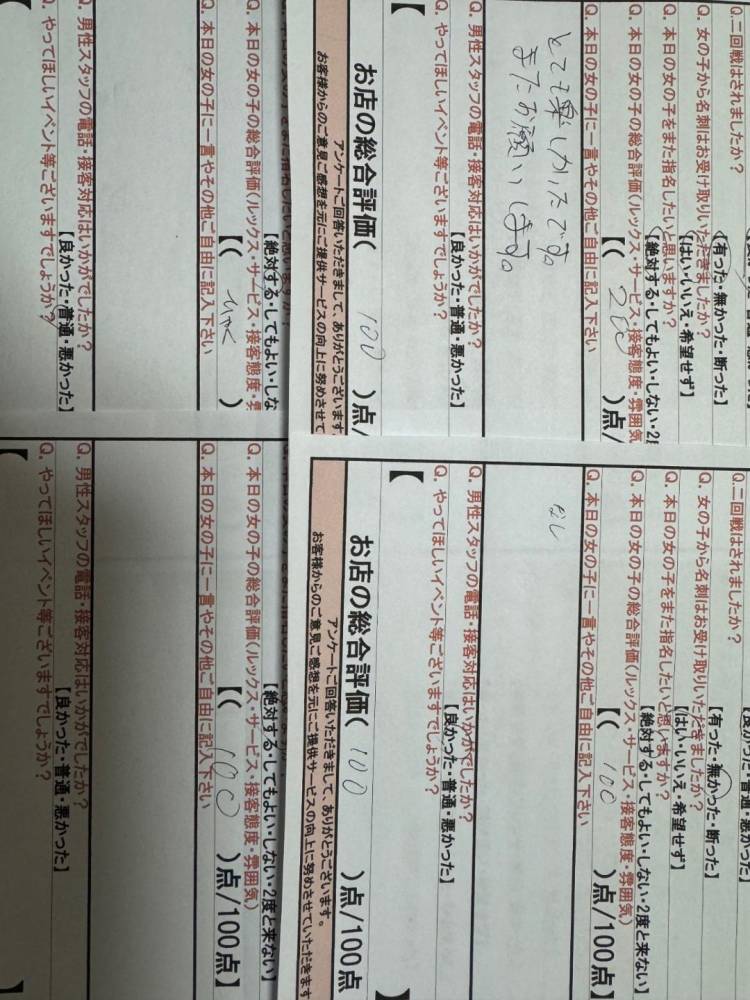 Q.二回戦はされましたか?
【有った・無かった・断った】
Q. 女の子から名刺はお受け取りいただきましたか?
【はい・いいえ・希望せず】
Q. 本日の女の子をまた指名したいと思いますか?
【絶対する・してもよい・しない・2度
Q. 本日の女の子の総合評価(ルックス・サービス・接客態度・雰囲気
【( 200 )点/
Q. 本日の女の子に一言やその他ご自由に記入下さい
とても楽しかったです。
またお願いします。
Q. 男性スタッフの電話・接客対応はいかがでしたか?
【良かった・普通・悪かった】
Q. やってほしいイベント等ございますでしょうか?
【
お店の総合評価( 100 )点/
アンケートご回答いただきまして、ありがとうございます
お客様からのご意見ご感想を元にご提供サービスの向上に努めさせて
【絶対する・してもよい・しな
Q. 本日の女の子の総合評価(ルックス・サービス・接客態度・雰
【( )
Q. 本日の女の子に一言やその他ご自由に記入下さい
Q. 男性スタッフの電話・接客対応はいかがでしたか?
【良かった・普通・悪かった】
Q. やってほしいイベント等ございますでしょうか?
Q.二回戦はされましたか?
【有った・無かった・断った】
Q. 女の子から名刺はお受け取りいただきましたか?
【はい・いいえ・希望せず】
Q. 本日の女の子をまた指名したいと思いますか?
【絶対する・してもよい・しない・2度と来ない】
Q. 本日の女の子の総合評価(ルックス・サービス・接客態度・雰囲気)
【( 100 )点/100点】
Q. 本日の女の子に一言やその他ご自由に記入下さい
なし
Q. 男性スタッフの電話・接客対応はいかがでしたか?
【良かった・普通・悪かった】
Q. やってほしいイベント等ございますでしょうか?
【
お店の総合評価( 100 )点/100点
アンケートご回答いただきまして、ありがとうございます。
お客様からのご意見ご感想を元にご提供サービスの向上に努めさせていただきます
【絶対する・してもよい・しない・2度と来ない】
Q. 本日の女の子の総合評価(ルックス・サービス・接客態度・雰囲気)
【( 100 )点/100点】
Q. 本日の女の子に一言やその他ご自由に記入下さい
Q. 男性スタッフの電話・接客対応はいかがでしたか?
【良かった・普通・悪かった】
Q. やってほしいイベント等ございますでしょうか?
【 】